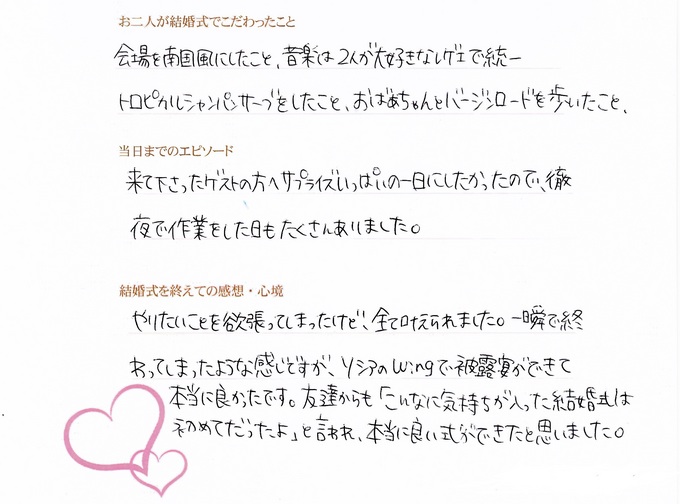 お二人が結婚式でこだわったこと
会場を南国風にしたこと、音楽は2人が大好きなレゲエで統一
トロピカルシャンパンサーブをしたこと、おばあちゃんとバージンロードを歩いたこと、
当日までのエピソード
来て下さったゲストの方へサプライズいっぱいの一日にしたかったので、徹
夜で作業をした日もたくさんありました。
結婚式を終えての感想・心境
やりたいことを欲張ってしまったけど、全て叶えられました。一瞬で終
わってしまったような感じですが、ソシアのWingで披露宴ができて
本当に良かったです。友達からも「こんなに気持ちが入った結婚式は
初めてだったよ」と言われ、本当に良い式ができたと思いました。